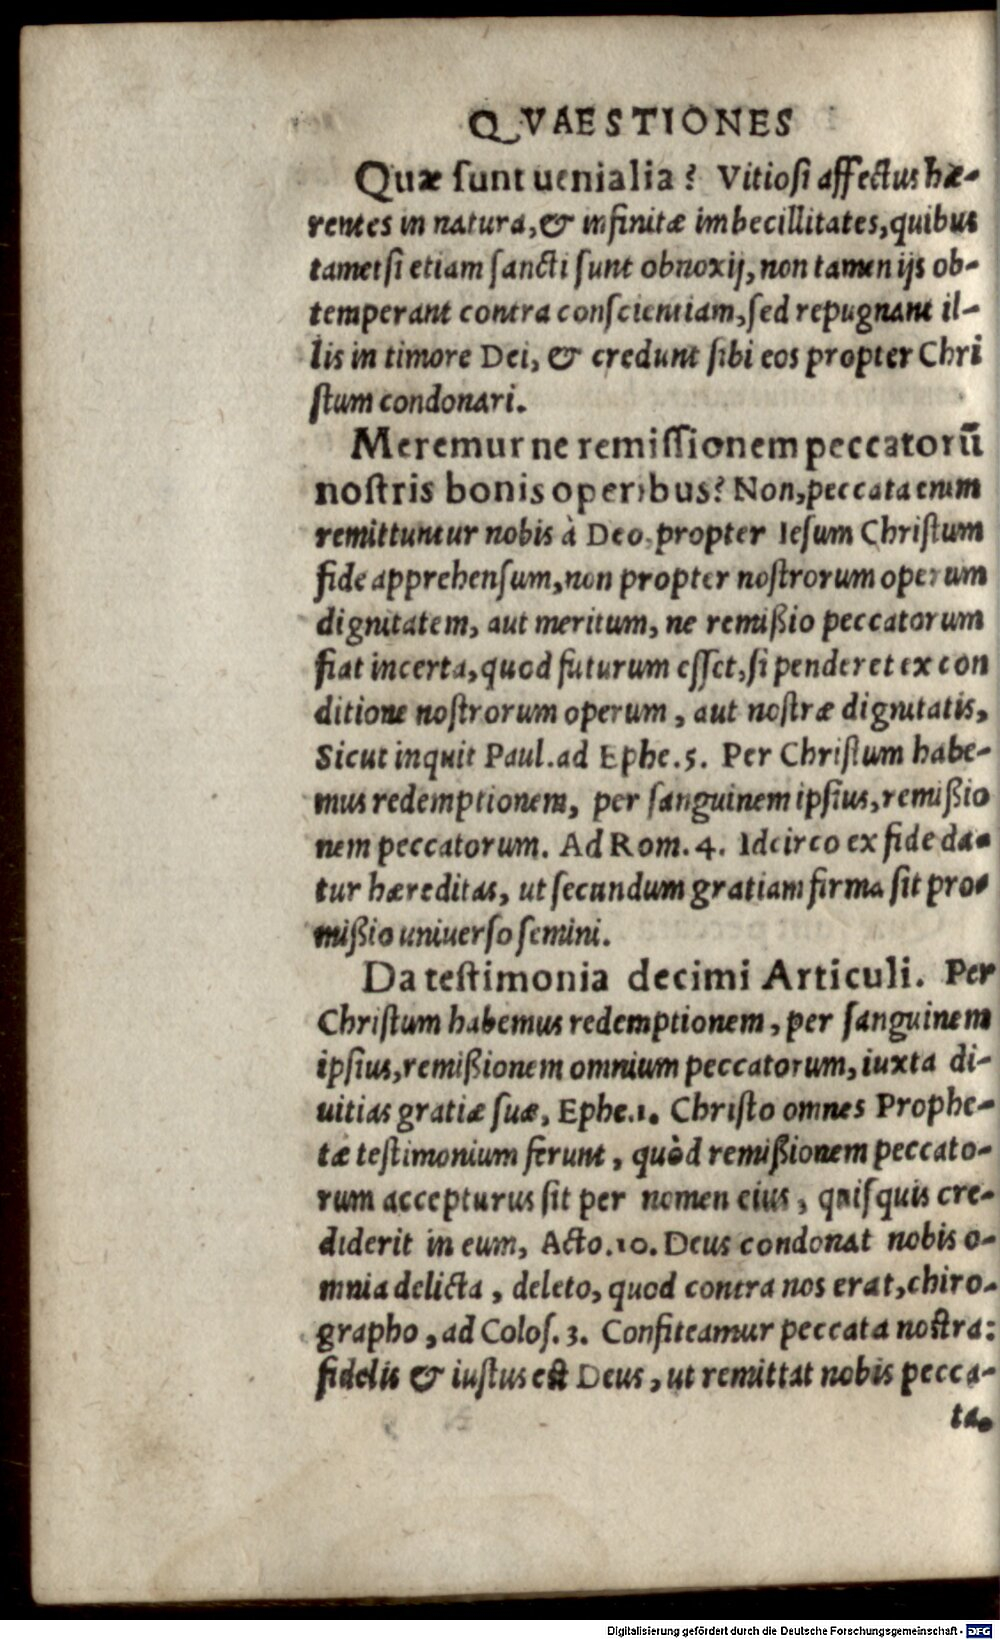 QVAESTIONES
Quæ sunt uenialia? Vitiosi affectus hæ-
rentes in natura, & infinitæ imbecillitates, quibus
tametsi etiam sancti sunt obnoxij, non tamen ijs ob-
temperant contra conscientiam, sed repugnant il-
lis in timore Dei, & credunt sibi eos propter Chri
stum condonari.
Meremur ne remissionem peccatorū
nostris bonis operibus? Non, peccata enim
remittuntur nobis à Deo, propter Iesum Christum
fide apprehensum, non propter nostrorum operum
dignitatem, aut meritum, ne remißio peccatorum
fiat incerta, quod futurum esset, si penderet ex con
ditione nostrorum operum, aut nostræ dignitatis,
Sicut inquit Paul. ad Ephe. 5. Per Christum habe-
mus redemptionem, per sanguinem ipsius, remißio
nem peccatorum. Ad Rom. 4. Idcirco ex fide da-
tur hæreditas, ut secundum gratiam firma sit pro-
mißio uniuerso semini.
Da testimonia decimi Articuli. Per
Christum habemus redemptionem, per sanguinem
ipsius, remißionem omnium peccatorum, iuxta di-
uitias gratiæ suæ, Ephe. 1. Christo omnes Prophe-
tæ testimonium ferunt, quòd remißionem peccato-
rum accepturus sit per nomen eius, quisquis cre-
diderit in eum, Acto. 10. Deus condonat nobis o-
mnia delicta, deleto, quod contra nos erat, chiro-
grapho, ad Colos. 3. Confiteamur peccata nostra:
fidelis & iustus est Deus, ut remittat nobis pecca-
ta.
Digitalisierung gefördert durch die Deutsche Forschungsgemeinschaft - DFG